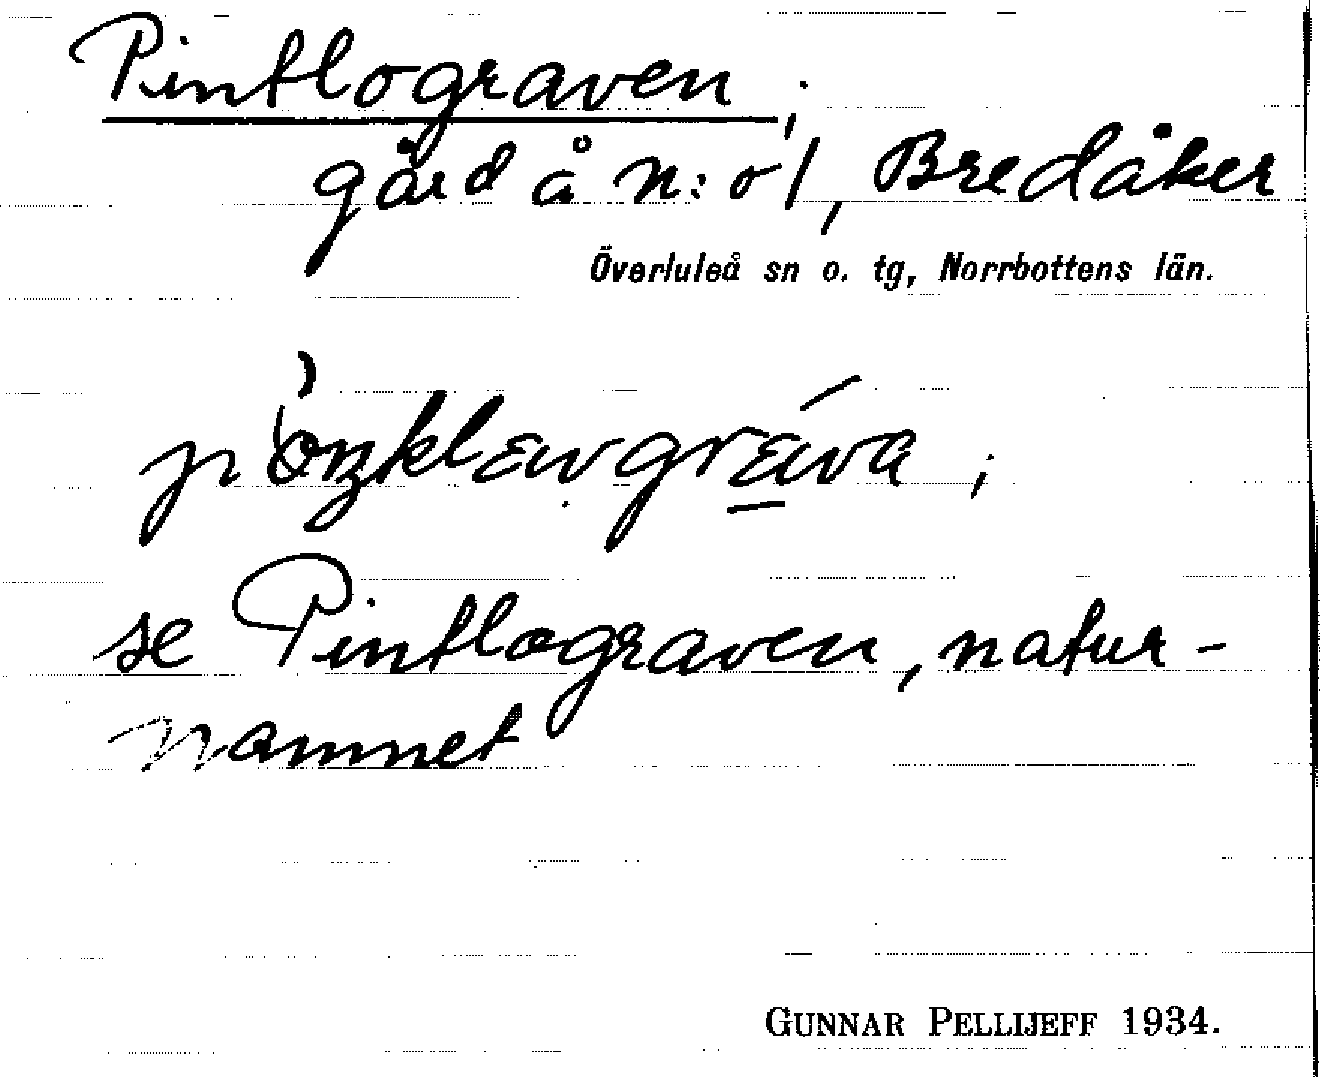 Pintlograven,
gård å n:o 1, Bredåker
Överluleå sn o. tg, Norrbottens län.
se Pintlograven, natur-
namnet
GUNNAR PELLIJEFF 1934.